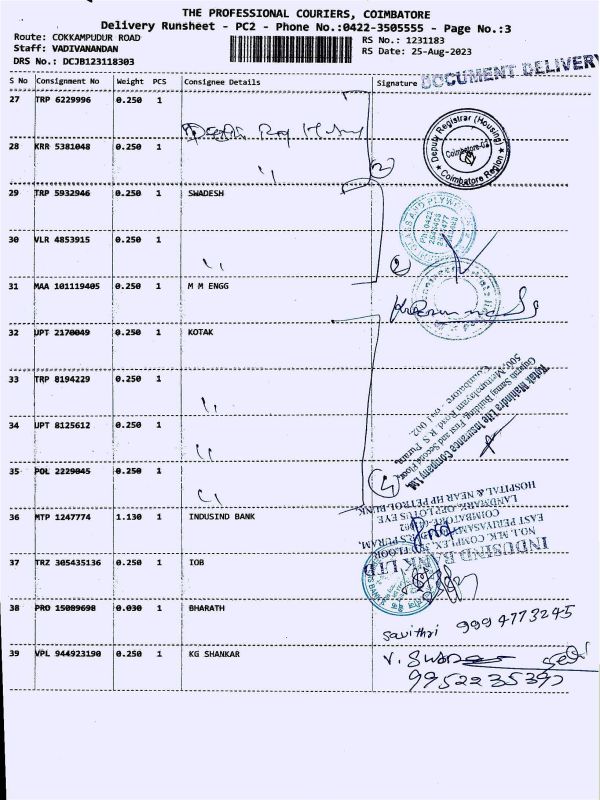 THE PROFESSIONAL COURIERS, COIMBATORE
Delivery Runsheet - PC2 - Phone No.:0422-3505555 - Page No.:3
Route: COKKAMPUDUR ROAD
Staff: VADIVANANDAN
DRS No.: DCJB123118303
RS No.: 1231183
RS Date: 25-Aug-2023
S No Consignment No Weight PCS Consignee Details Signature
DOCUMENT DELIVERY
27 TRP 6229996 0.250 1
28 KRR 5381048 0.250 1 "
Deputy Registrar (Housing)
Coimbatore
Coimbatore Region
2
29 TRP 5932946 0.250 1 SWADESH
30 VLR 4853915 0.250 1 "
2
31 MAA 101119405 0.250 1 M M ENGG
32 UPT 2170049 0.250 1 KOTAK
33 TRP 8194229 0.250 1 "
34 UPT 8125612 0.250 1 "
35 POL 2229045 0.250 1 "
4
Kotak Mahindra Life Insurance Company Ltd.
Gujarath Samaj Building, First and Second Floor,
500, Mettupalayam Road, R.S. Puram,
Coimbatore - 641 002.
36 MTP 1247774 1.130 1 INDUSIND BANK
INDUSIND BANK LTD
NO.1, M.K. COMPLEX, FLOOR
EAST PERIYASAMY R.S PURAM,
COIMBATORE
LANDMARK, OPP LOTUS EYE
HOSPITAL & NEAR HP PETROL BUNK
37 TRZ 305435136 0.250 1 IOB
38 PRO 15089698 0.030 1 BHARATH
Savithri 9994773245
39 VPL 944923190 0.250 1 KG SHANKAR
9952235390